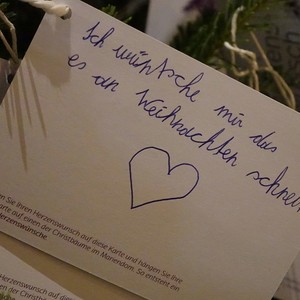 Ich wünsche mir das
es an Weihnachten schneit
en Sie Ihren Herzenswunsch auf diese Karte und hängen Sie Ihre
Karte auf einen der Christbäume im Mariendom. So entsteht ein
Herzenswünsche.
Herzenswunsch auf diese
der Christbä